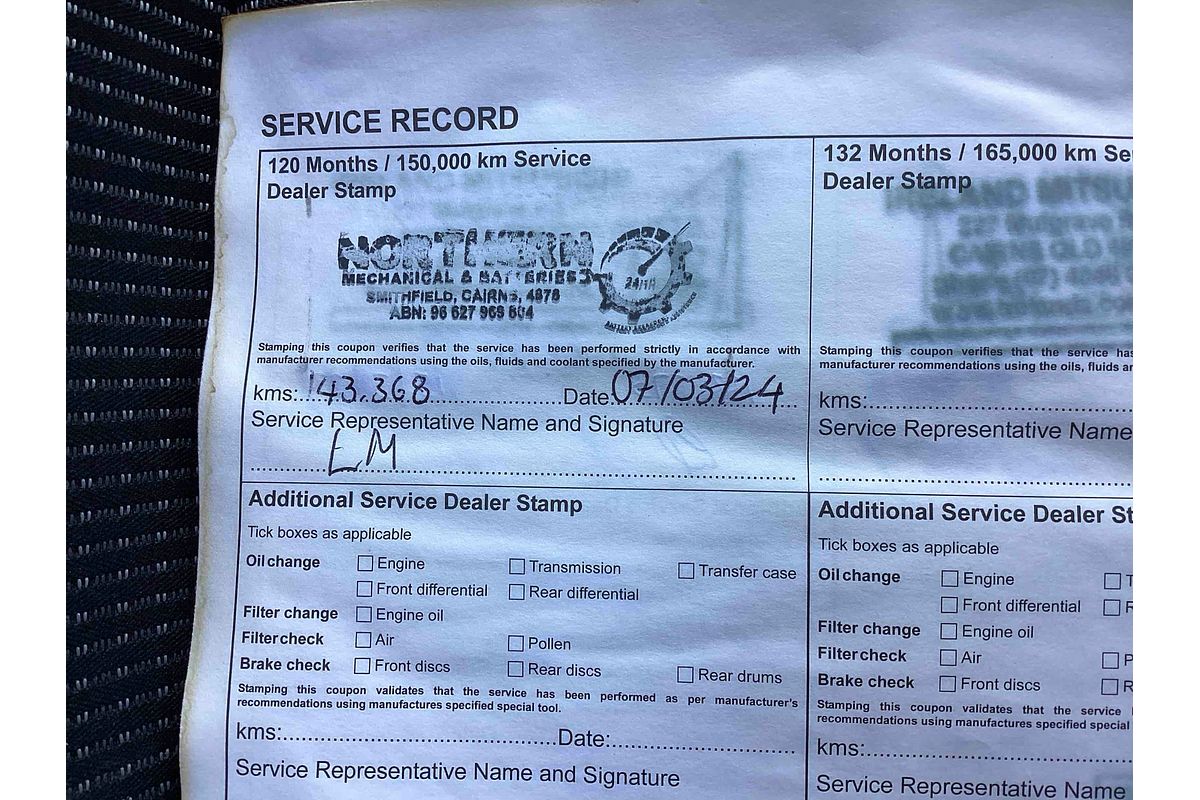 SERVICE RECORD
120 Months / 150,000 km Service
Dealer Stamp
NORTHERN
MECHANICAL & BATTERIES
SMITHFIELD, CAIRNS, 4878
ABN: 96 627 969 604
24/14
Stamping this coupon verifies that the service has been performed strictly in accordance with
manufacturer recommendations using the oils, fluids and coolant specified by the manufacturer.
kms: 143.368 Date: 07/03/24
Service Representative Name and Signature
EM
Additional Service Dealer Stamp
Tick boxes as applicable
Oil change Engine Transmission Transfer case
Front differential Rear differential
Filter change Engine oil
Filter check Air Pollen
Brake check Front discs Rear discs Rear drums
Stamping this coupon validates that the service has been performed as per manufacturer's
recommendations using manufactures specified special tool.
kms: Date:
Service Representative Name and Signature
132 Months / 165,000 km Se
Dealer Stamp
Stamping this coupon verifies that the service has
manufacturer recommendations using the oils, fluids an
kms:
Service Representative Name
Additional Service Dealer St
Tick boxes as applicable
Oil change Engine T
Front differential R
Filter change Engine oil
Filter check Air P
Brake check Front discs R
Stamping this coupon validates that the service
recommendations using manufactures specified special
kms:
Service Representative Name